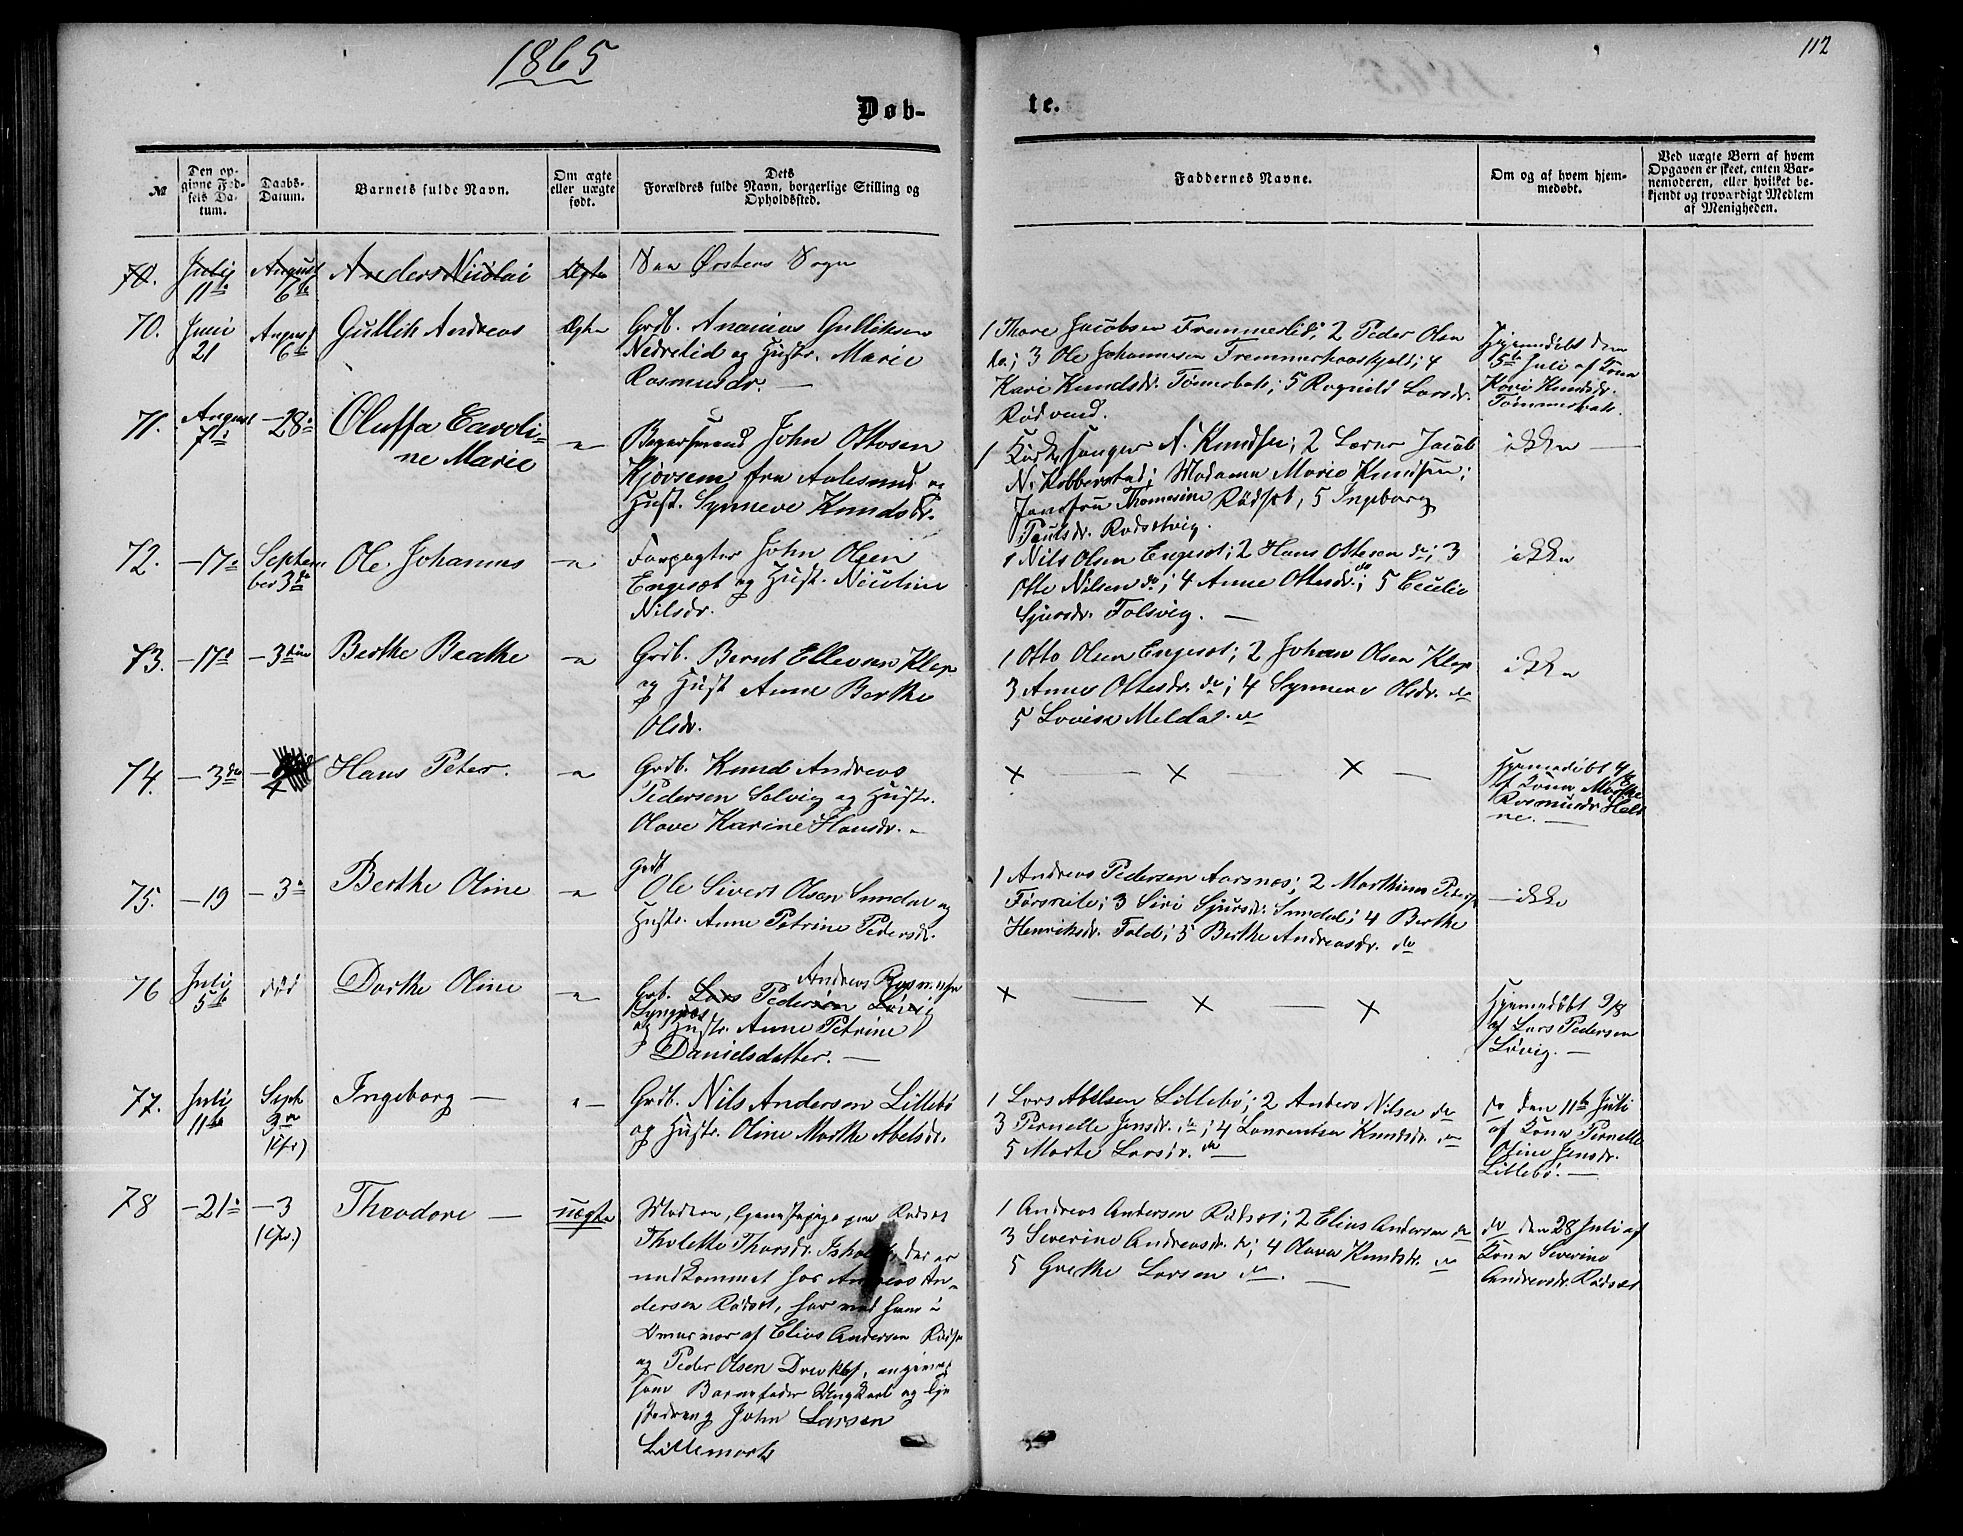 1865
112
Døb-
te.
№
Den op-
givne Fød-
sels Da-
tum.
Daabs-
Datum.
Barnets fulde Navn.
Om ægte
eller uægte
født.
Dets
Forældres fulde Navn, borgerlige Stilling og
Opholdssted.
Faddernes Navne.
Om og af hvem hjem-
medøbt.
Ved uægte Børn af hvem
Opgaven er skeet, enten Bar-
nemoderen, eller hvilket be-
kjendt og troværdigt Medlem
af Menigheden.
70.
Juli
11te
August
6te
Anders Nicolai
Ægte
Ørstens Sogn
70.
Juni
21
August
6te
Gullik Andreas
Ægte
Grdb. Ananias Gulliksen
Nedrelid og Hustr. Marie
Rasmusdr. —
1 Thore Jacobsen Fremmerlid; 2 Peder Olsen
do; 3 Ole Johannesen Fremmerhaaskjold; 4
Kari Knudsdr. Tømmerbak; 5 Ragnild Larsdr.
Rødvand.
Hjemmdøbt den
5te Juli af Kona
Kari Knudsdr.
Tømmerbak.
71.
August
7de
—28de
Oluffa Caroli-
ne Marie
—"—
John Ottosen
Kjørsem fra Aalesund og
Hust. Synneve Knudsdr.
1 Kirkesanger N. Knudsen; 2 Lærer Jacob
N. Kobberstad; Madame Marie Knudsen;
Jomfru Thomasine Rødset, 5 Ingeborg
Paulsdr. Rødsetvig.
ikke —
72.
—17de
Septem-
ber 3de
Ole Johannes
—"—
Forpagter John Olsen
Engeset og Hust. Nicoline
Nilsdr.
1 Nils Olsen Engeset; 2 Hans Ottesen do; 3
Otte Nilsen do; 4 Anne Ottesdr. do; 5 Cecilie
Sjursdr. Folsvig. —
ikke
73.
—17de
—3die
Berthe Beathe
—"—
Grdb. Bernt Ellevsen Klep
og Hust Anne Berthe
Olsdr.
1 Otto Olsen Engeset; 2 Johan Olsen Klep
3 Anne Ottesdr. do; 4 Synneve Olsdr. do
5 Lovise Meldal. do
ikke
74.
—3de
4
Hans Peter.
—"—
Grdb. Knud Andreas
Pedersen Solvig og Hustr.
Olave Karine Hansdr. —
× — × — × —
Hjemmedøbt 4/8
af Kona Marthe
Rasmusdr Hel-
ne. —
75.
—19
—3de
Berthe Oline
—"—
Grdb
Ole Sivert Olsen Sundal og
Hustr. Anne Petrine Pedersdr.
1 Andreas Pedersen Aarsnes; 2 Marthinus Peters.
3 Siri Sjursdr. Sundal; 4 Berthe
Henriksdr. Fold; 5 Berthe Andreasdr. do
—ikke
76
Juli
5te
død
Dorthe Oline
—"—
Andreas Rasmusen
Grb. Lars Pedersen Løvig
Lyngnes
og Hustr. Anne Petrine
Danielsdatter. —
× — × — ×
Hjemmedøbt 9/8
af Lars Pedersen
Løvig. —
77.
Juli
11te
Septr
3die
Ingeborg —
"—
Grdb. Nils Andersen Lillebø
og Hustr. Oline Marthe Abelsdr.
1 Lars Abelsen Lillebø; 2 Anders Nilsen do
3 Pernelle Jensdr. do; 4 Laurentsa Knudsdr. do
5 Marte Larsdr. do
do den 11te Juli
af Kona Pernelle
Oline Jensdr.
Lillebø. —
78
—21de
—3
Theodore —
uægte
Moderen, Tjenestepige paa Rødset
Tholette Thorsdr. der er
nedkommet hos Andreas An-
dersen Rødset, har ved
af Elias Andersen Rødset
og Peder Olsen angivet
som Barnefader Ungkarl og Tje-
stedreng John Larsen
Lillemork
1 Andreas Andersen Rødset; 2 Elias Andersen do
3 Severine Andreasdr. do; 4 Olava Knudsdr. do
5 Grethe Larsen do. —
do den 28 Juli af
Kona Severine
Andreasdr. Rødset